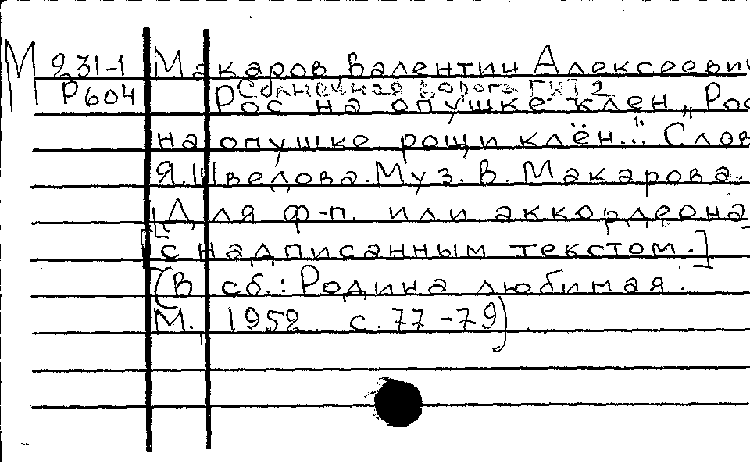 М 231-1 Макаров Валентин Алексеевич
Р604 Солнечная дорога ГКТ 2
Рос на опушке клён „Рос
на опушке рощи клён..." Слов
Я. Шведова. Муз. В. Макарова.
[Для ф-п. или аккордеона
[с надписанным текстом.]
(В сб.: Родина любимая.
М., 1952 с. 77-79)